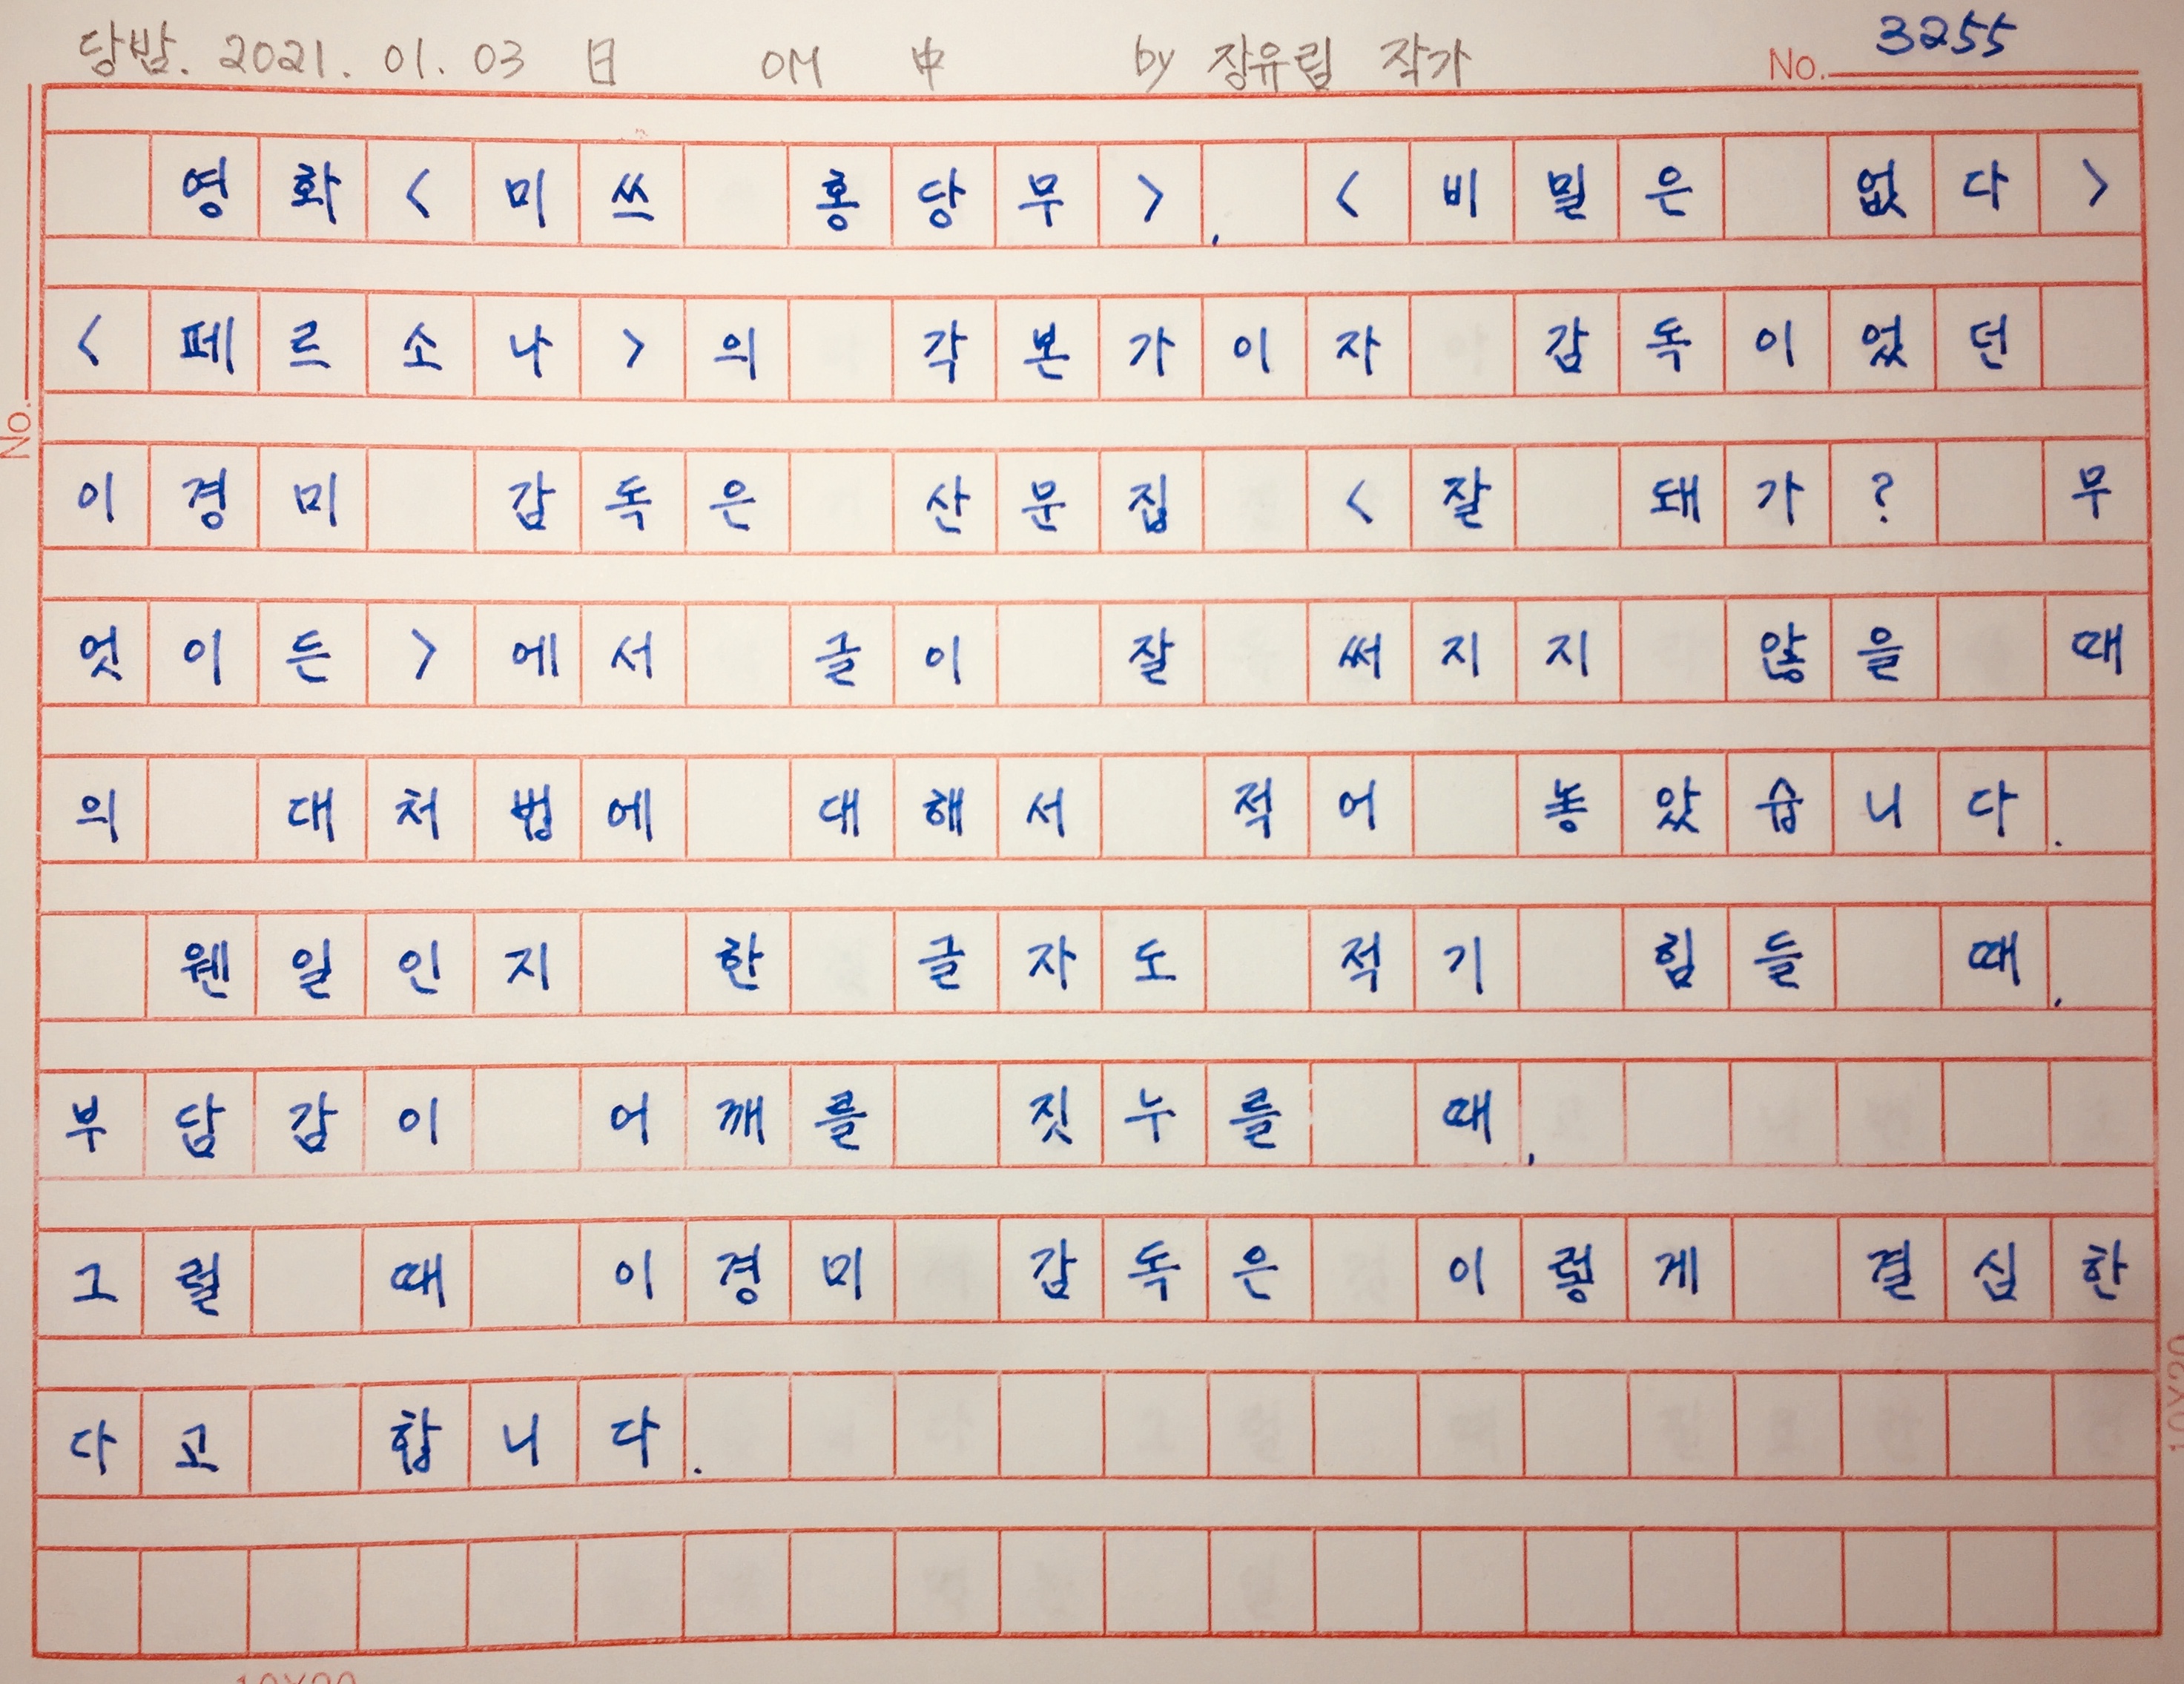 당밤. 2021. 01. 03 日 OM 中 by 장유림 작가 No. 3255
영화<미쓰 홍당무>, <비밀은 없다>
<페르소나>의 각본가이자 감독이었던
이경미 감독은 산문집 <잘 돼가? 무
엇이든>에서 글이 잘 써지지 않을 때
의 대처법에 대해서 적어 놓았습니다.
웬일인지 한 글자도 적기 힘들 때,
부담감이 어깨를 짓누를 때,
그럴 때 이경미 감독은 이렇게 결심한
다고 합니다.
No.
10X20
10X20